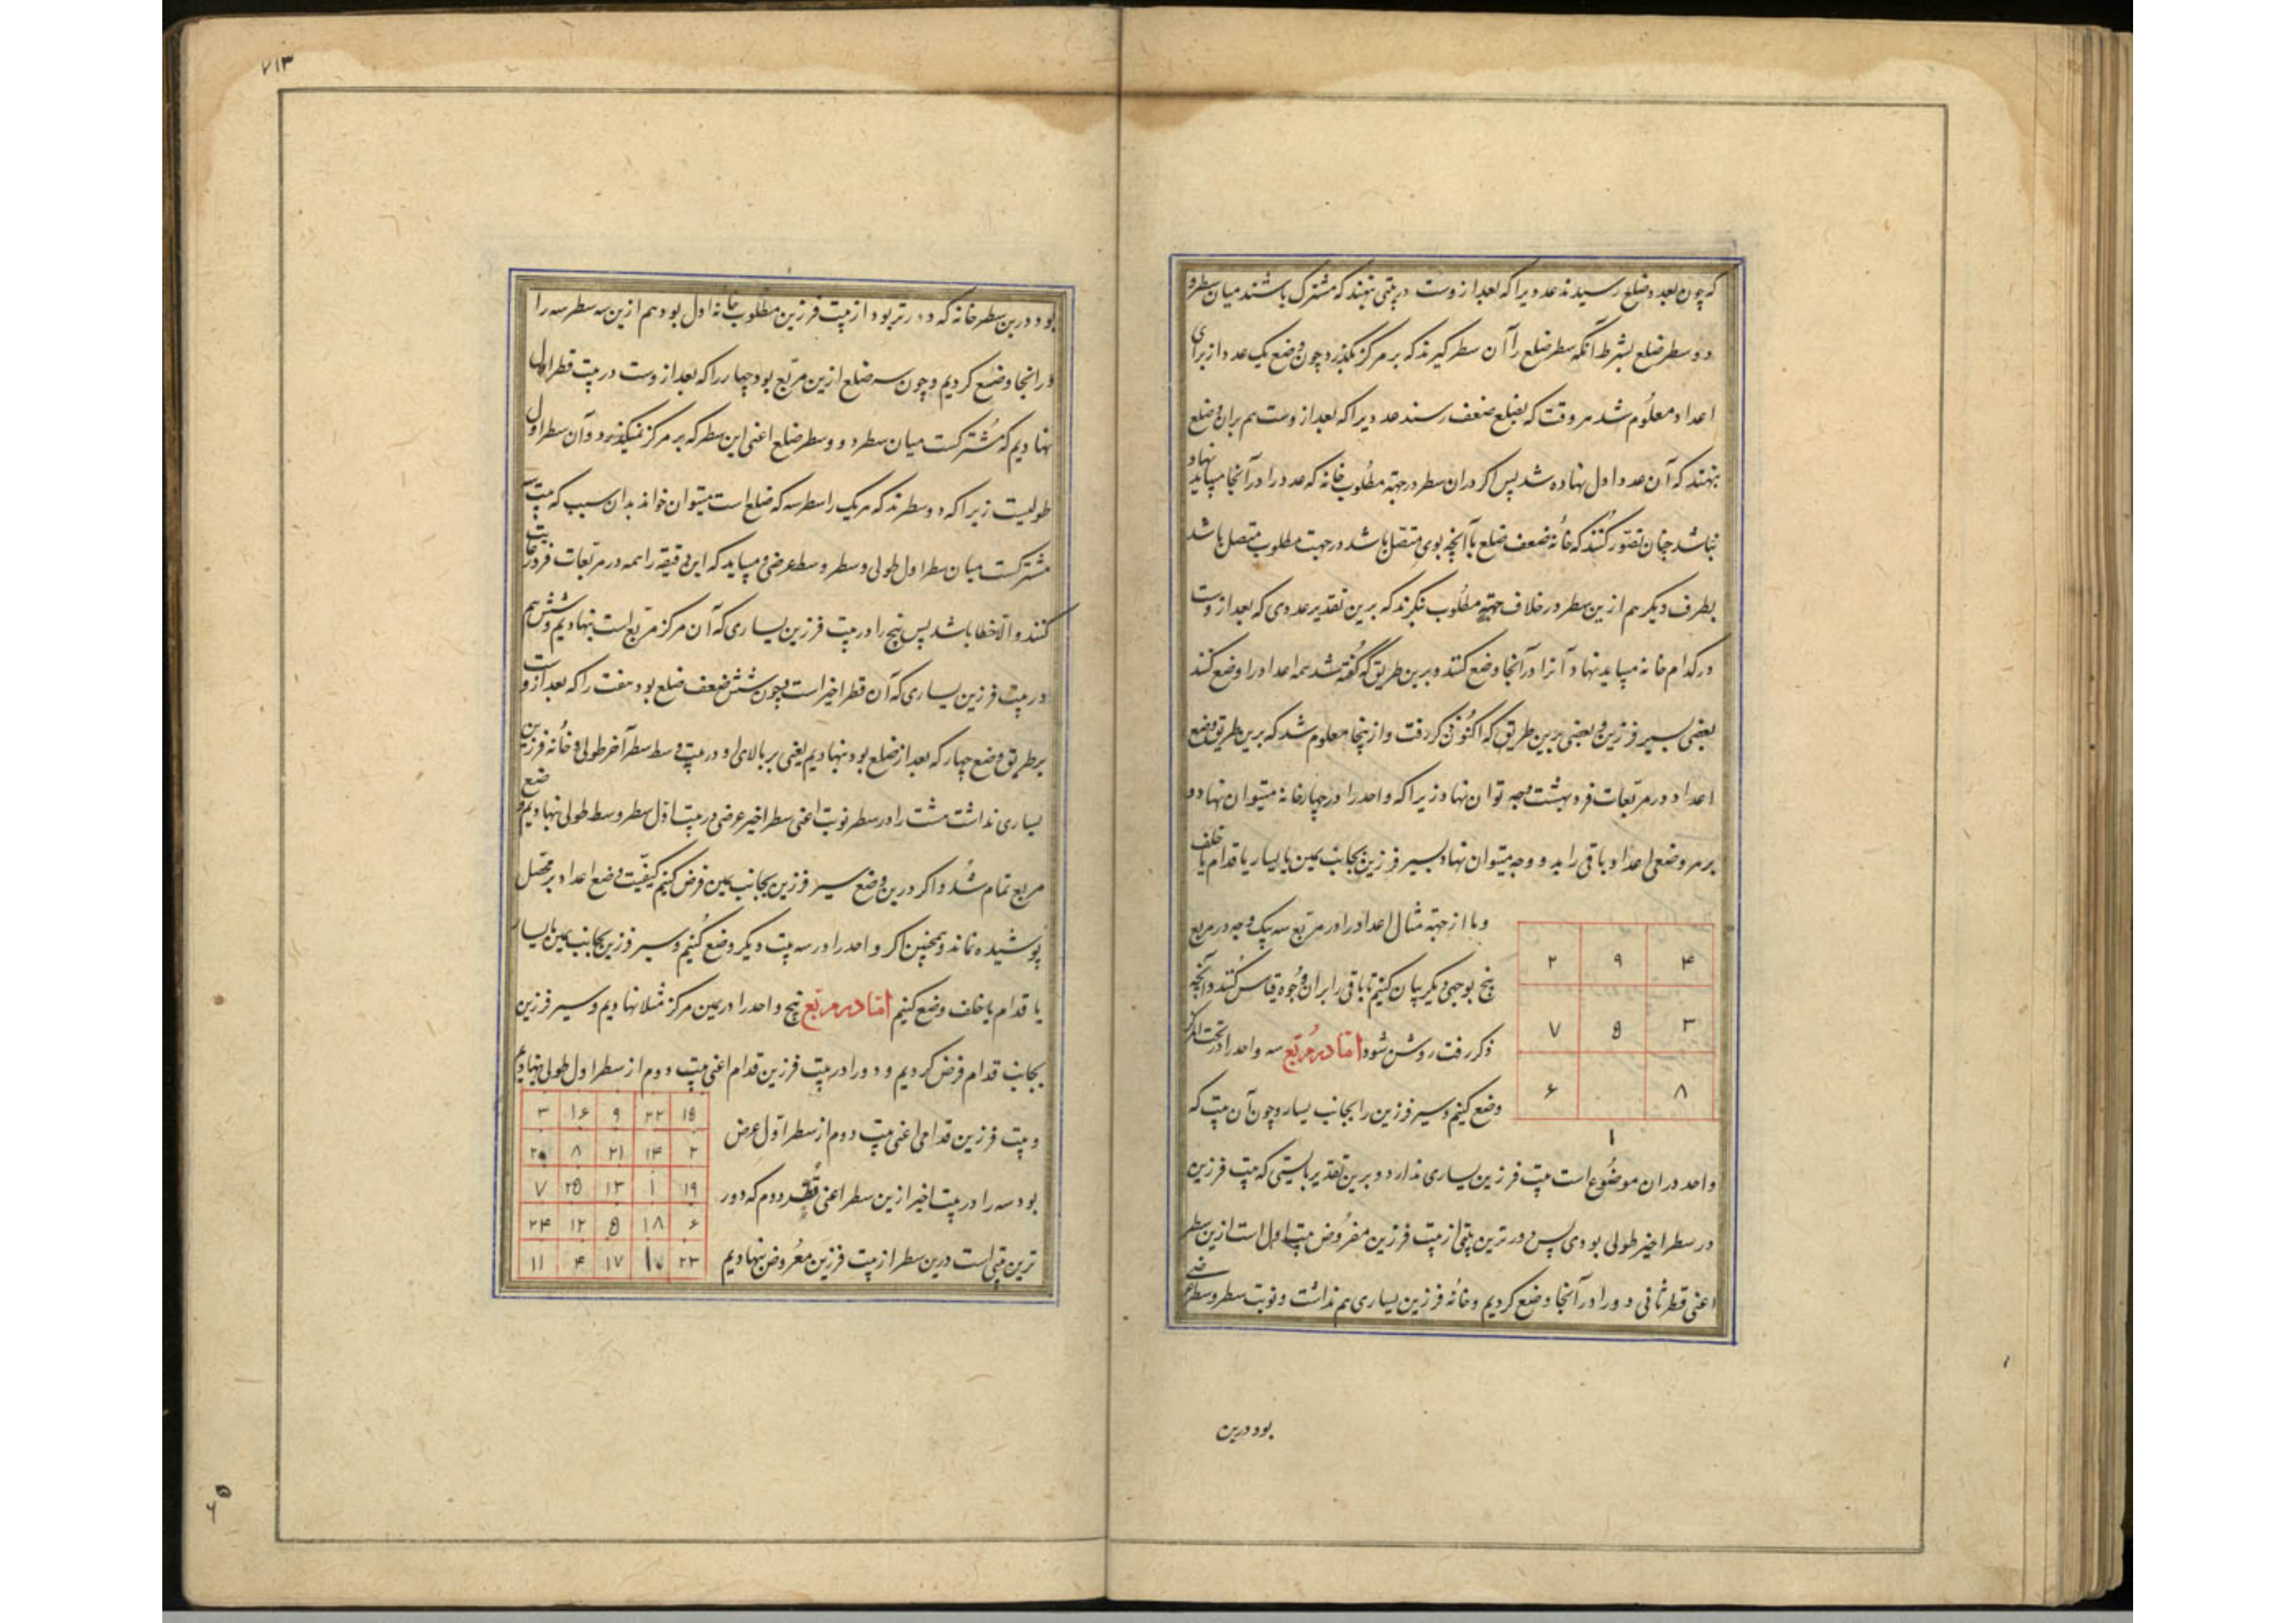 که چون بعدد ضلع رسیدند عددی را که بعد از وست در بیتی بنهند که مشترک باشند میان سطر و
دو سطر ضلع بشرط آنکه سطر ضلع را آن سطر گیرند که بر مرکز بگذرد چون وضع یک عدد از برای
اعداد معلوم شد هر وقت که بضلع ضعف رسند عددی را که بعد از وست هم بران وضع
بنهند که آن عدد اول نهاده شد پس اگر دران سطر در جهة مطلوب خانه که عدد را در آنجا میباید نهاد
نباشد چنان تصور کنند که خانهٔ ضعف ضلع با آنچه بوی متصل باشد در جهت مطلوب متصل باشد
بطرف دیگر هم ازین سطر در خلاف جهة مطلوب نگرند که برین تقدیر عددی که بعد از وست
در کدام خانه میباید نهاد آنرا در آنجا وضع کنند و برین طریق که گفته شد همه اعداد را وضع کنند
بعضی بسیر فرزین و بعضی بدین طریق که اکنون ذکر رفت و از ینجا معلوم شد که برین طریق وضع
اعداد در مربعات فرد بهشت وجه توان نهاد زیرا که واحد را در چهار خانه میتوان نهاد و
بر هر وضعی اعداد باقی را بد و وجه میتوان نهاد بسیر فرزین بجانب یمین یا یسار یا قدام یا خلف
و ما از جهة مثال اعداد را در مربع سه بیک وجه و در مربع
پنج بوجهی دیگر بیان کنیم تا باقی را بران وجوه قیاس کنند و آنچه
ذکر رفت روشن شود اما در مربع سه واحد را در تحت مرکز
وضع کنیم و سیر فرزین را بجانب یسار و چون آن بیت که
۴ ۹ ۲
۳ ۵ ۷
۸ ۶
۱
واحد دران موضوع است بیت فرزین یساری ندارد و برین تقدیر بایستی که بیت فرزین
در سطر اخیر طولی بودی پس دورترین بیتی از بیت فرزین مفروض بیت اول است ازین سطر
اعنی قطر ثانی دو را در آنجا وضع کردیم و خانهٔ فرزین یساری هم نداشت و نوبت سطر وسط عرضی
بود درین
۷۱۳
بود درین سطر خانه که دورتر بود از بیت فرزین مطلوب خانه اول بود هم ازین سه سطر سه را
در انجا وضع کردیم و چون سه ضلع ازین مربع بود چهار را که بعد از وست در بیت قطر اول
نهادیم که مشترکست میان سطر دو و سطر ضلع اعنی این سطر که بر مرکز نمیگذرد و آن سطر اول
طولیست زیرا که دو سطرند که هر یک را سطر سه که ضلع است میتوان خواند بدان سبب که بیت سه
مشترکست میان سطر اول طولی و سطر وسط عرضی و میباید که این دقیقه را همه در مربعات فرد رعایت
کنند و الا خطا باشد پس پنج را در بیت فرزین یساری که آن مرکز مربع است بنهادیم و شش هم
در بیت فرزین یساری که آن قطر اخیر است و چون شش ضعف ضلع بود هفت را که بعد از وست
بر طریق وضع چهار که بعد از ضلع بود بنهادیم یعنی بر بالای او در بیت وسط سطر آخر طولی و خانهٔ فرزین
یساری نداشت هشت را در سطر نوبت اعنی سطر اخیر عرضی در بیت اول سطر وسط طولی نهادیم وضع
مربع تمام شد و اگر درین وضع سیر فرزین بجانب یمین فرض کنیم کیفیت وضع اعداد بر محصل
پوشیده نماند و همچنین اگر واحد را در سه بیت دیگر وضع کنیم و سیر فرزین بجانب یمین یا یسار
یا قدام یا خلف وضع کنیم اما در مربع پنج واحد را در یمین مرکز مثلا نهادیم و سیر فرزین
بجانب قدام فرض کردیم و دو را در بیت فرزین قدام اعنی بیت دوم از سطر اول طولی نهادیم
و بیت فرزین قدامی اعنی بیت دوم از سطر اول عرض
بود سه را در بیت اخیر ازین سطر اعنی قطر دوم که دور
ترین بیتی است درین سطر از بیت فرزین معروض بنهادیم
۱۵ ۲۲ ۹ ۱۶ ۳
۲ ۱۴ ۲۱ ۸ ۲۰
۱۹ ۱ ۱۳ ۲۵ ۷
۶ ۱۸ ۵ ۱۲ ۲۴
۲۳ ۱۰ ۱۷ ۴ ۱۱